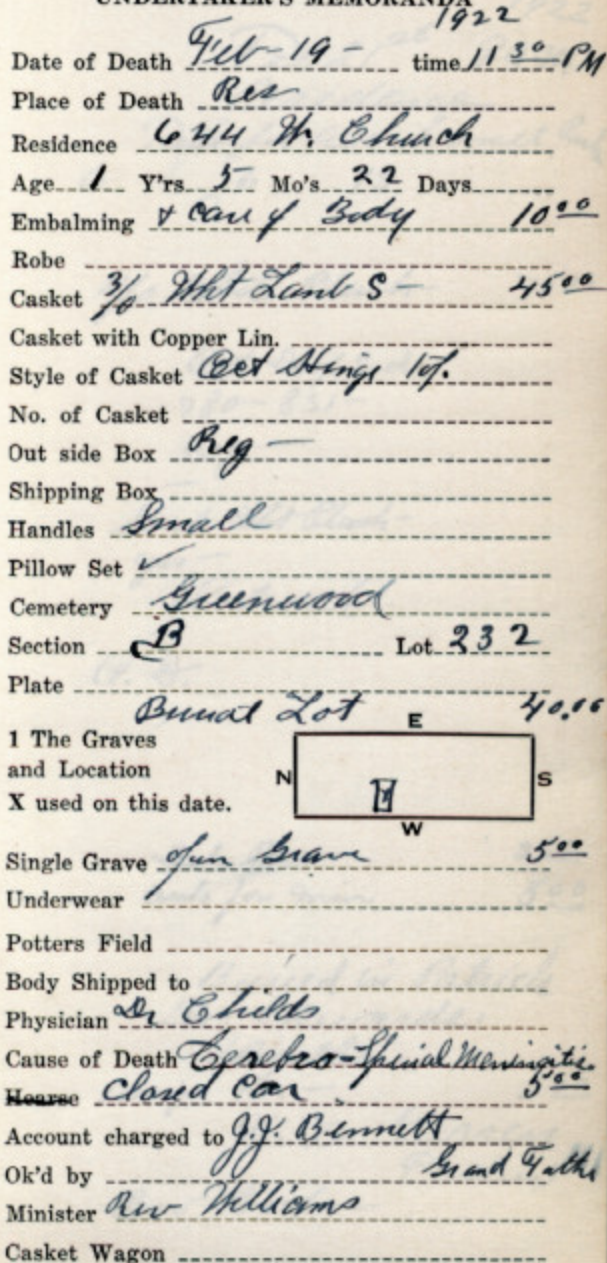 UNDERTAKER'S MEMORANDA
1922
Date of Death Feb-19- time 11 30 PM
Place of Death Res
Residence 644 W. Church
Age 1 Y'rs 5 Mo's 22 Days
Embalming & care of Body 10 00
Robe
Casket 3/0 Wht Lamb S- 45 00
Casket with Copper Lin.
Style of Casket Oct Hinge
No. of Casket
Out side Box Reg-
Shipping Box
Handles Small
Pillow Set ✓
Cemetery Greenwood
Section B Lot 232
Plate
Burial Lot 40.00
E
1 The Graves
and Location
N S
X used on this date.
W
Single Grave open Grave 5 00
Underwear
Potters Field
Body Shipped to
Physician Dr Childs
Cause of Death Cerebro-Spinal Meningitis
Hearse Closed Car 5 00
Account charged to J.J. Bennett
Ok'd by Grand Fathe
Minister Rev Williams
Casket Wagon